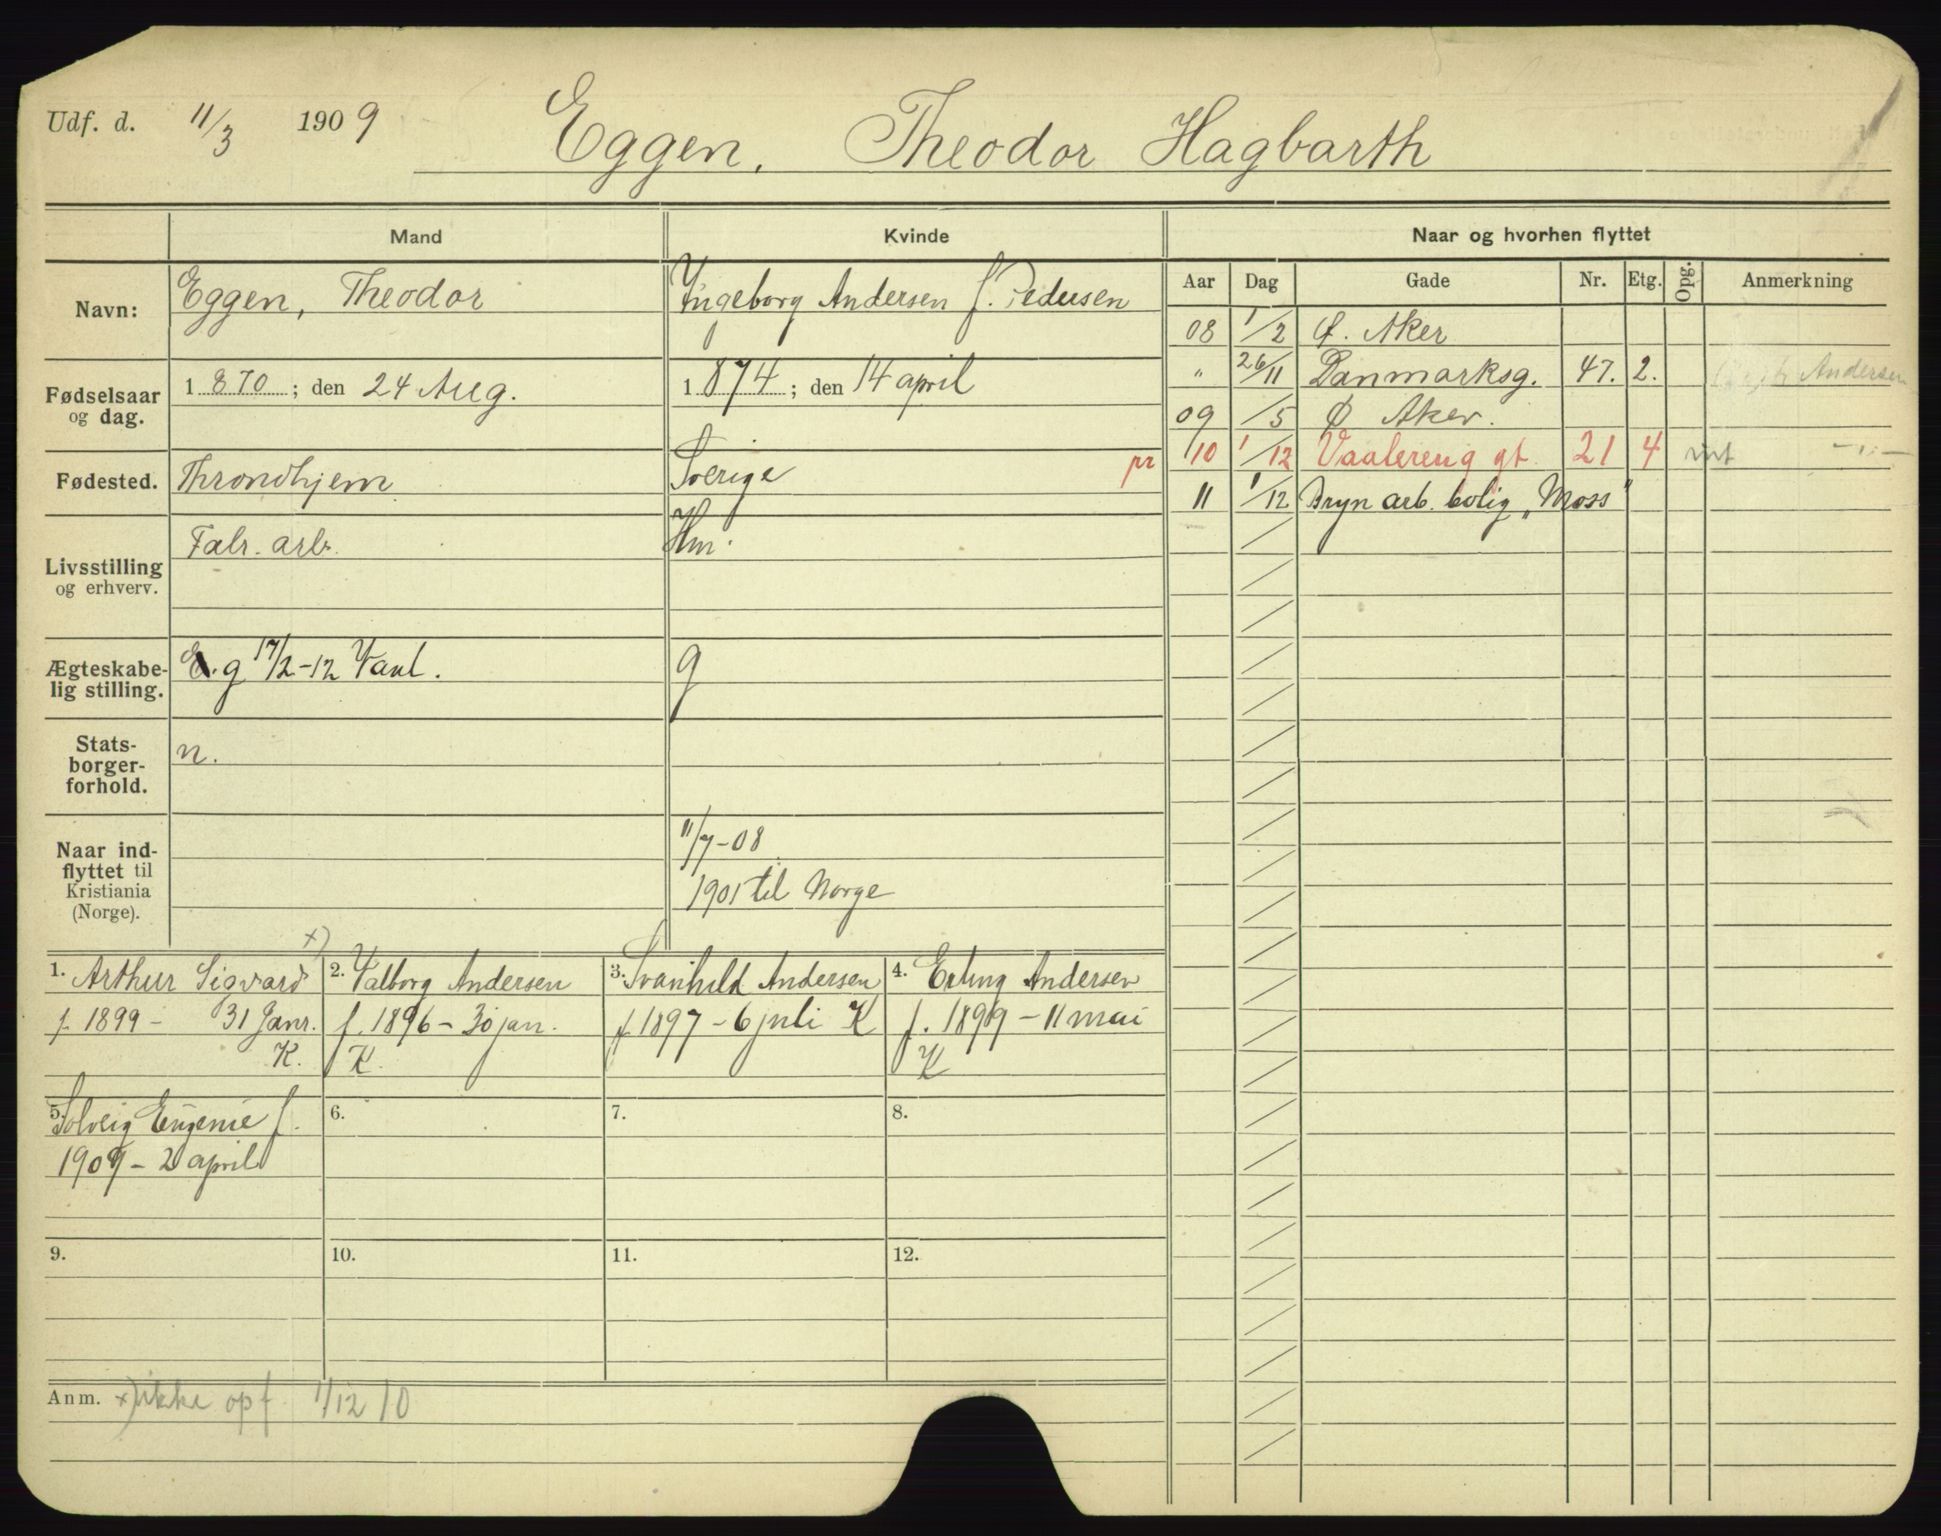 Udf. d. 11/3 1909 Eggen, Theodor Hagbarth
Mand Kvinde Naar og hvorhen flyttet
Aar Dag Gade Nr. Etg. Opg. Anmerkning
Navn: Eggen, Theodor Ingeborg Andersen f. Pedersen
Fødselsaar og dag. 1870; den 24 Aug. 1874; den 14 april
Fødested. Throndhjem Sverige pr
Livsstilling og erhverv. Fabr. arb. Hm.
Ægteskabelig stilling. E. g 17/2-12 Vaal. g
Statsborgerforhold. n.
Naar indflyttet til Kristiania (Norge). 11/7-08
1901 til Norge
08 1/2 Ø. Aker
" 26/11 Danmarksg. 47. 2. Andersen
09 /5 Ø Aker.
10 1/12 Vaalereng gt. 21 4
11 1/12 Bryn arb. bolig „Moss"
x)
1. Arthur Sigvard
f. 1899 - 31 Janr.
K.
2. Valborg Andersen
f. 1896 - 30 jan.
K.
3. Svanhild Andersen
f. 1897 - 6 juli K
4. Erling Andersen
f. 1899 - 11 mai
K
5. Solveig Eugenie f.
1909 - 2 april
6.
7.
8.
9.
10.
11.
12.
Anm. x) ikke opf. 1/12 10